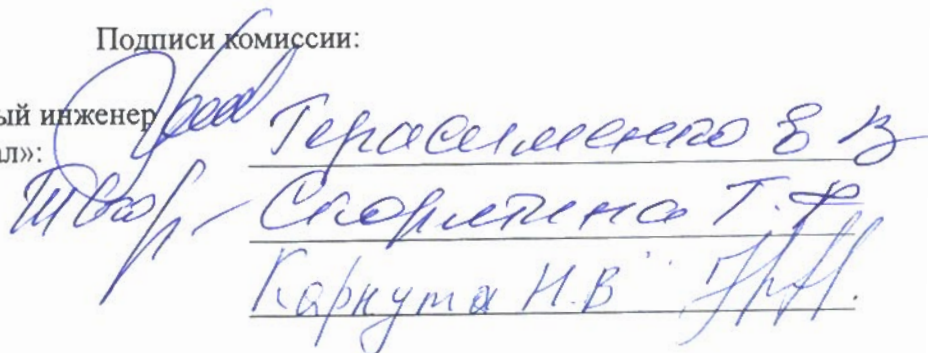 Подписи комиссии:
ый инженер
ал»:
Герасименко Е В
Скорятина Т.Ф
Карнута Н.В